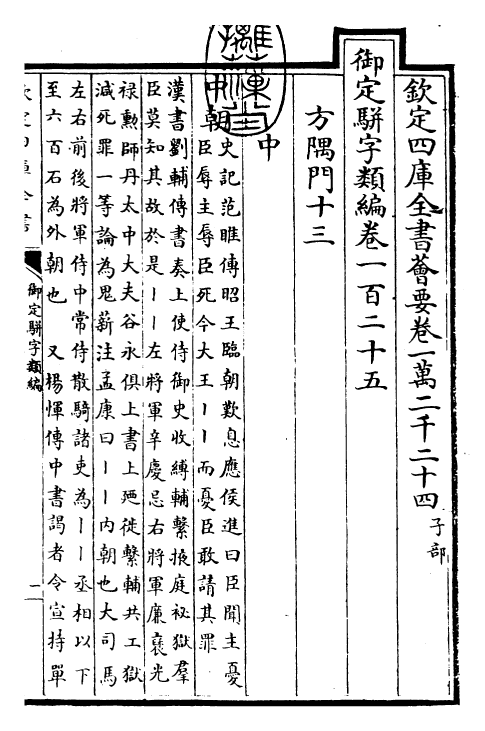 欽定四庫全書薈要卷一萬二千二十四 子部
御定駢字類編卷一百二十五
方隅門十三
中
中朝 史記范雎傳昭王臨朝歎息應侯進曰臣聞主憂
臣辱主辱臣死今大王丨丨而憂臣敢請其罪
漢書劉輔傳書奏上使侍御史收縛輔繫掖庭祕獄羣
臣莫知其故於是丨丨左將軍辛慶忌右將軍廉襃光
祿勲師丹太中大夫谷永俱上書上廼徙繫輔共工獄
減死罪一等論為鬼薪注孟康曰丨丨內朝也大司馬
左右前後將軍侍中常侍散騎諸吏為丨丨丞相以下
至六百石為外朝也 又楊惲傳中書謁者令宣持單
欽定四庫全書
御定駢字類編
一